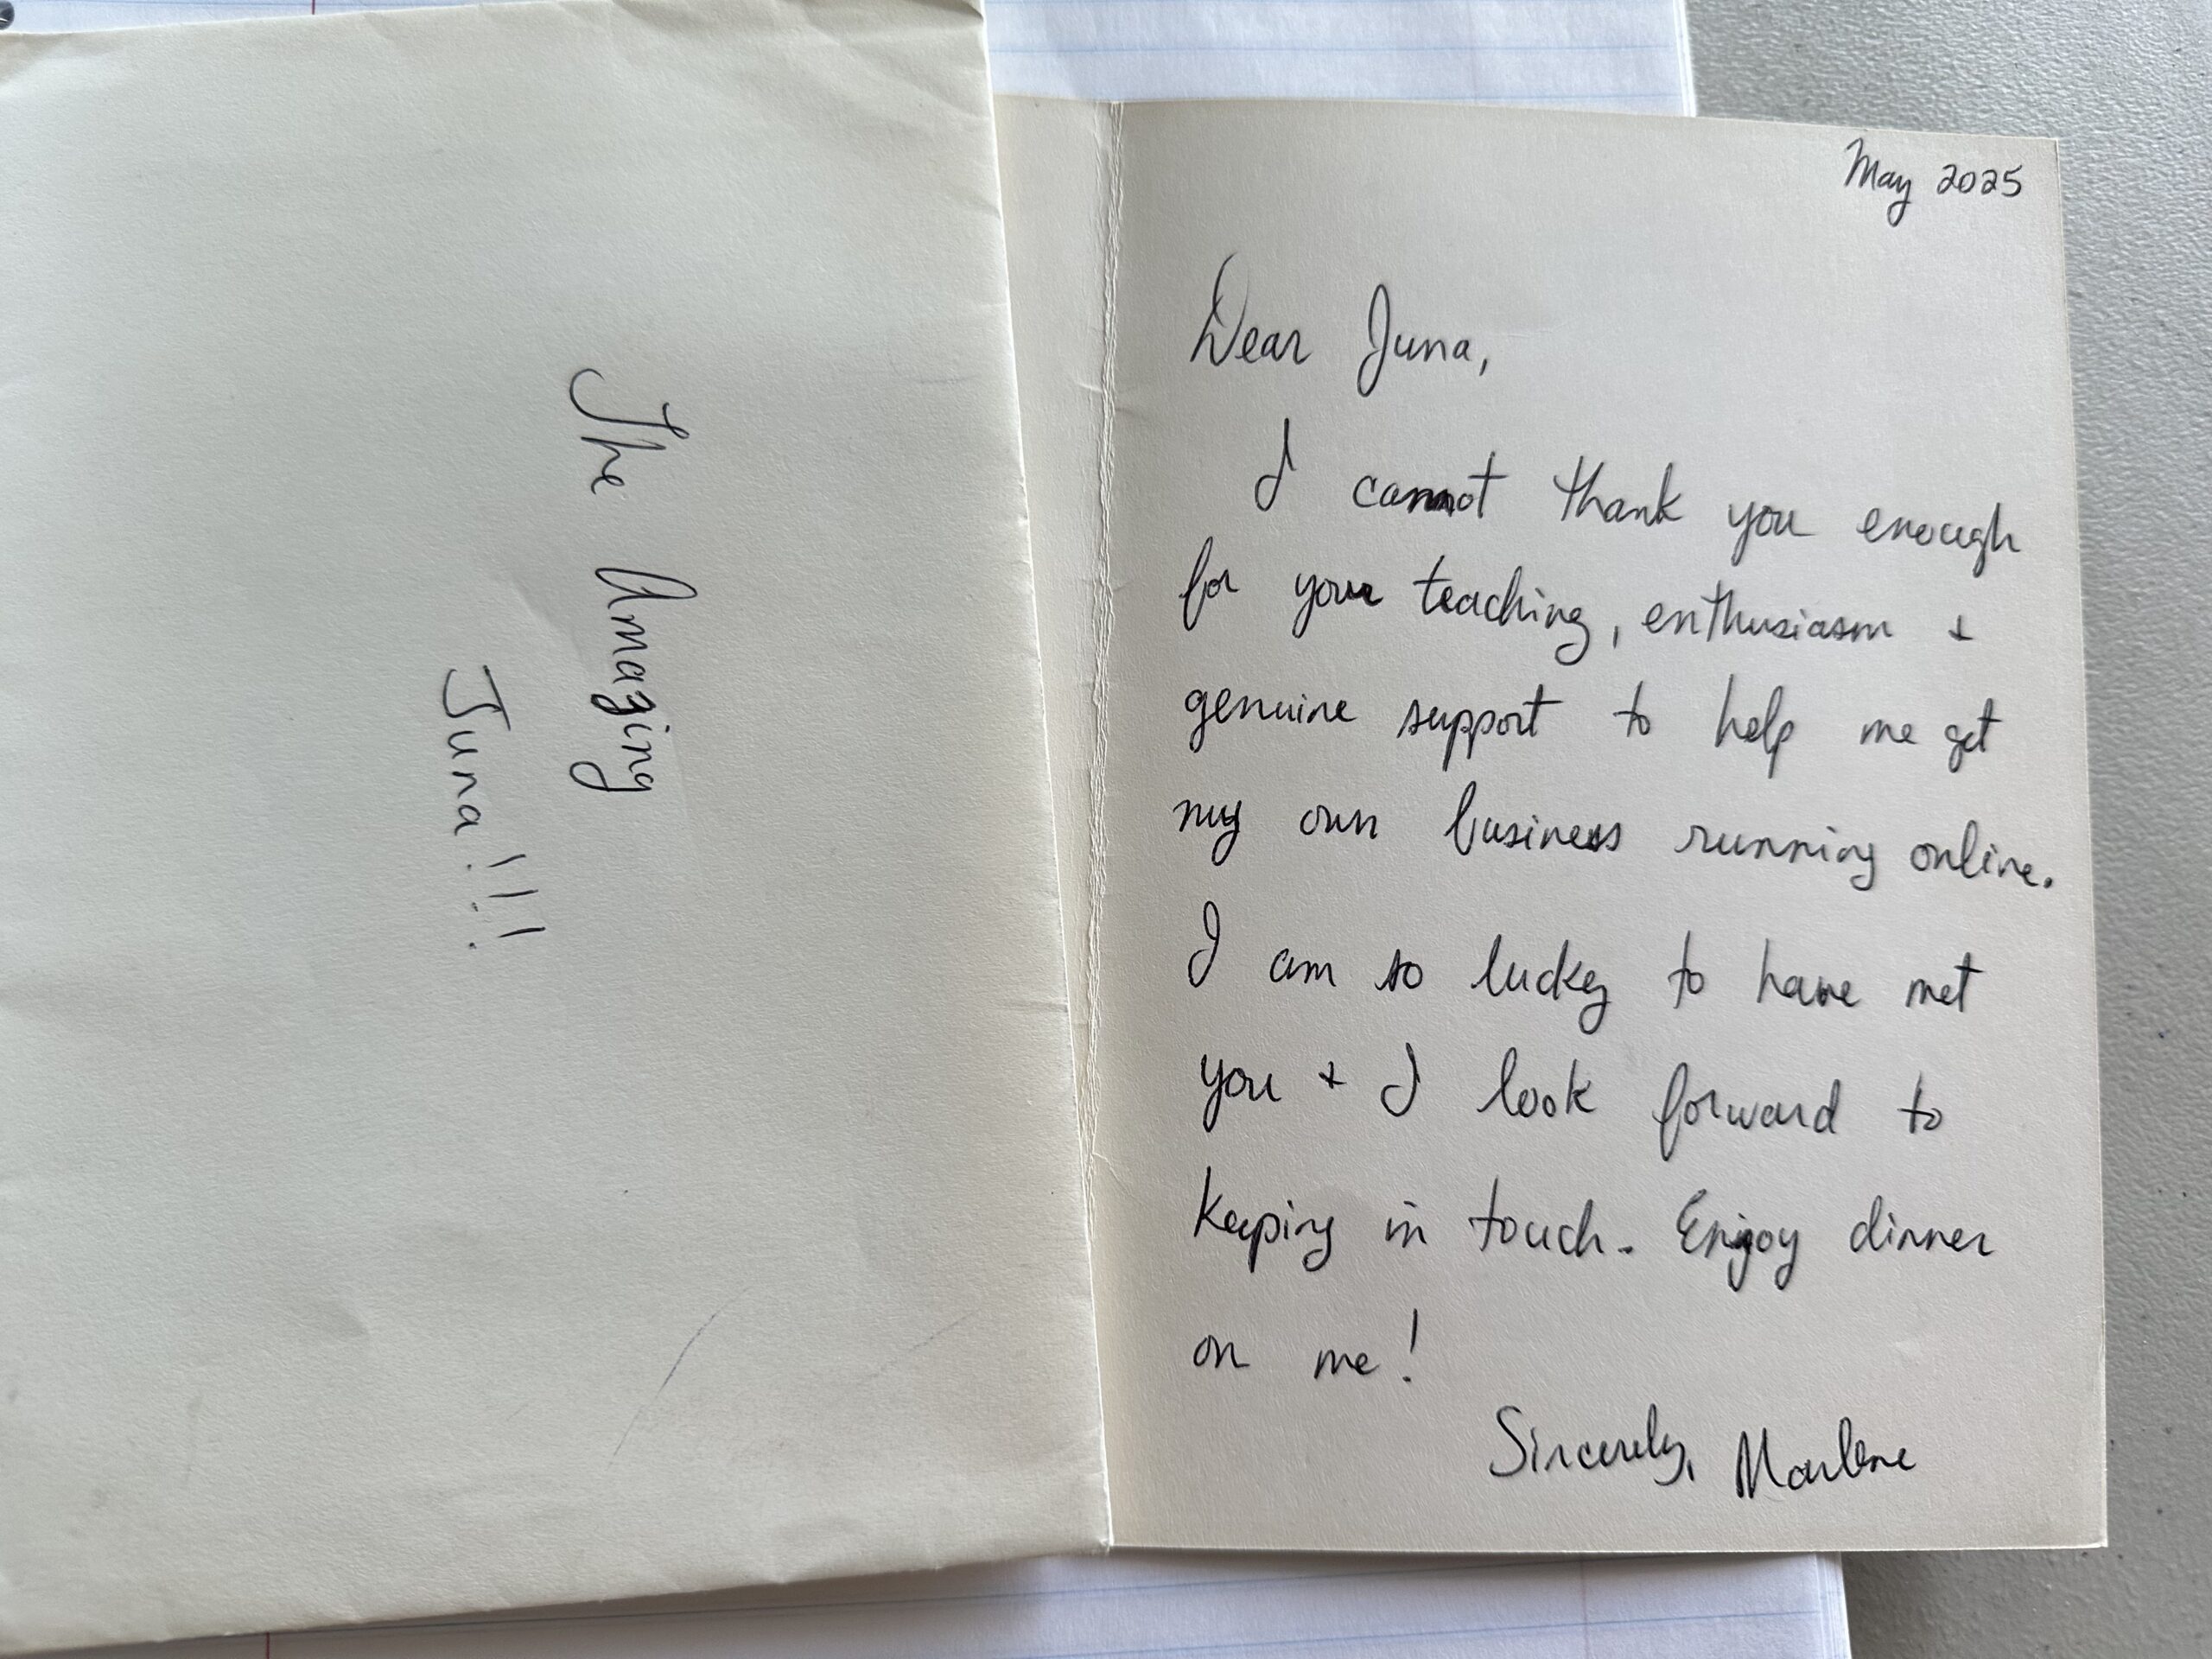 The Amazing
Juna!!!
May 2025
Dear Juna,
I cannot thank you enough
for your teaching, enthusiasm +
genuine support to help me get
my own business running online.
I am so lucky to have met
you + I look forward to
keeping in touch. Enjoy dinner
on me!
Sincerely, Marlene